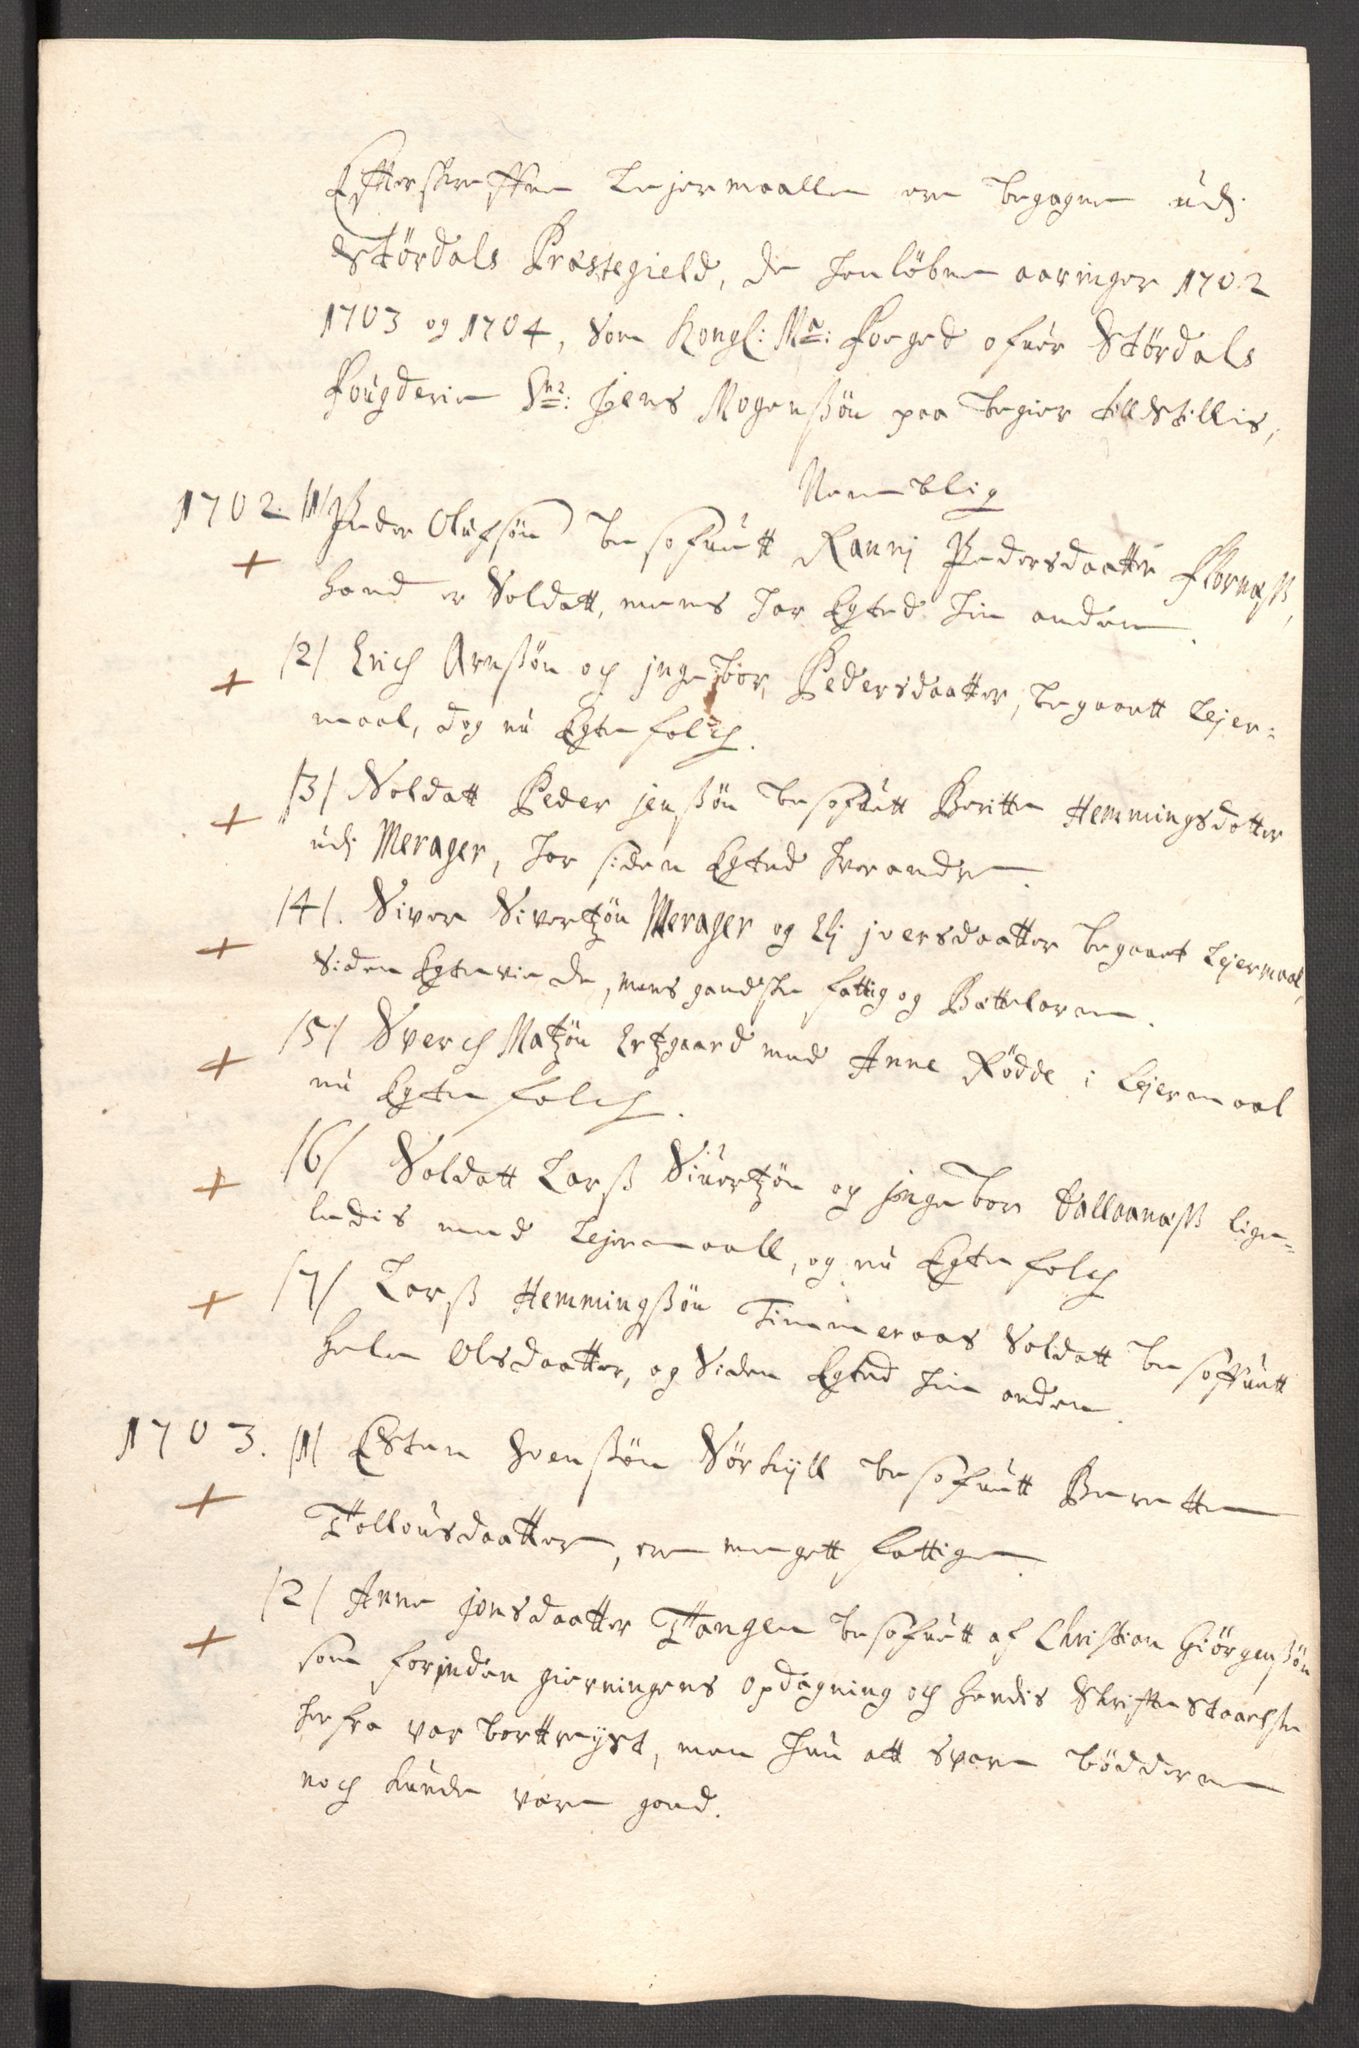 Effterskreffne Lejermaaller ere begagne udj
Størdals Præstegield, de henløbne aaringer 1702
1703 og 1704, som Kongl: Ma: Foeged ofuer Størdals
Fougderie Sr: Jens Mogenßøn paa begier tillstillis,
Nemblig
1702. /1/ Peder Olufsøn besofuett Rannj Pedersdaatter Flornæß,
+ hand er Soldatt, mens har Egted hin anden.
/2/ Erich Arnßøn och jngebor Pedersdaatter, begaaett Lejer=
+ maal, dog nu Egte folch.
/3/ Soldatt Peder jenßøn besofuett Beritte Hemmingsdotter
+ udj Merager, har siden Egted hverandre.
/4/. Siver Sivertzøn Merager og Elj joersdaatter begaaet Lejermaal,
+ siden Egtevie de, mens gandske fattig og Bettelerne.
/5/ Sverch Matzøn Ertzgaard med Anne Rødde i Lejermaal
+ nu Egte folch.
/6/ Soldatt Larß Siuertzøn og jngebor Kallaanæß lige=
+ ledis med Lejermaall, og nu Egte folch
/7/ Larß Hemmingßøn Timmeraas Soldatt besoffuett
+ Hele Olsdaatter, og siden Egted hin anden.
1703. /1/ Esten Svenßøn Sørhyll besofuett Berette
+ Tollousdaatter, ere megett fattige
/2/ Anne jonsdaatter Tangen besofuett af Christian Giørgenßøn
+ som forinden gierningens opdagning och hendis Skriftestaaelse
herfra var bortreyst, men hun att svare bødderne
noch kunde være goed.